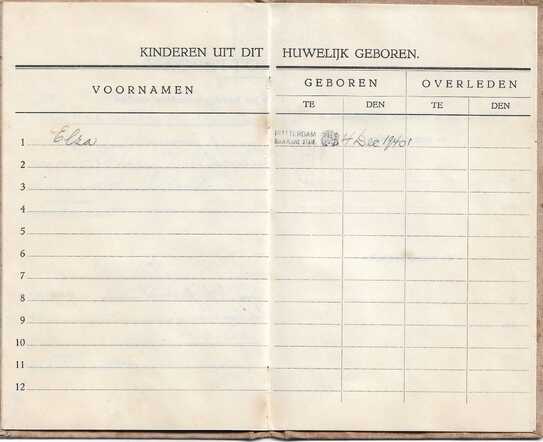 KINDEREN UIT DIT HUWELIJK GEBOREN.
VOORNAMEN
GEBOREN OVERLEDEN
TE DEN TE DEN
1 Elsa ROTTERDAM 4 Dec 1940
2
3
4
5
6
7
8
9
10
11
12